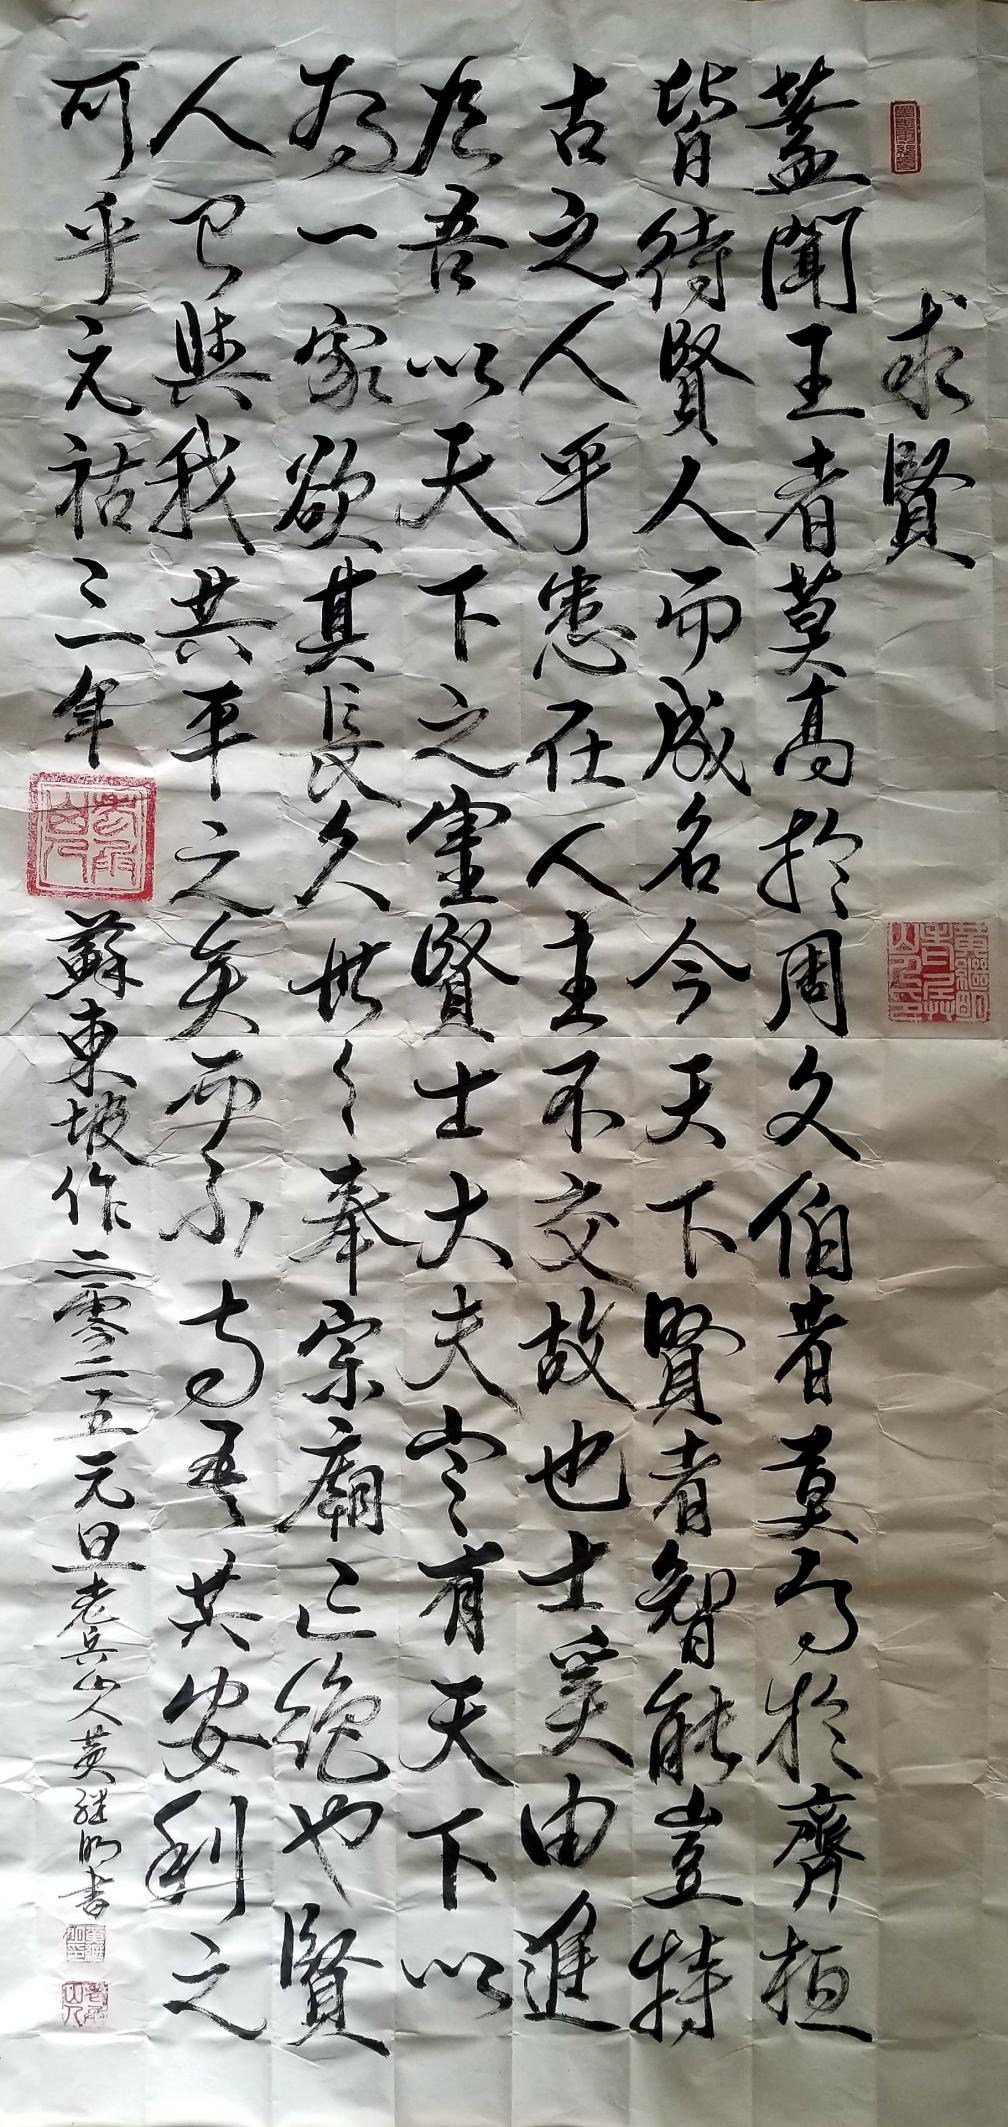 求賢
蓋聞王者莫高於周文伯者莫高於齊桓
皆待賢人而成名今天下賢者智能豈特
古之人乎患在人主不交故也士奚由進
今吾以天下之靈賢士大夫定有天下以
為一家欲其長久世々奉宗廟亡絕也賢
人已與我共平之矣而不与吾共安利之
可乎元祐三年
蘇東坡作二零二五元旦老兵山人黄继明書